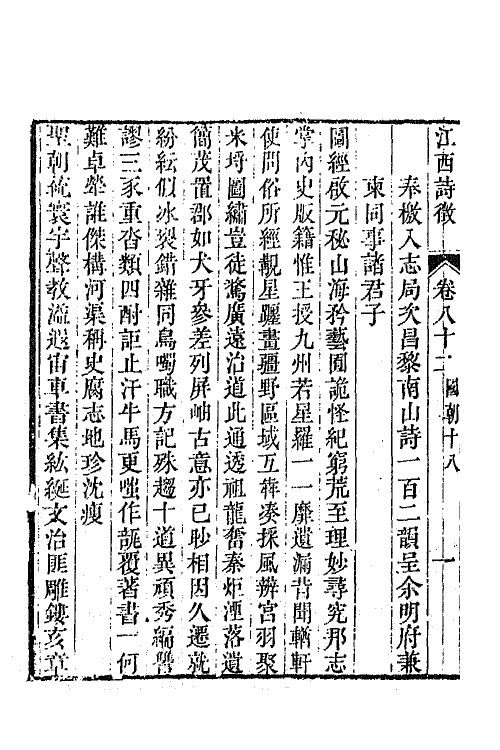 江西詩徵　卷八十二　國朝十八　一
奉檄入志局次昌黎南山詩一百二韻呈余明府兼
柬同事諸君子
圖經啟元秘山海矜藝囿詭怪紀窮荒至理妙尋究那志
掌內史版籍惟王授九州若星羅一一靡遺漏昔聞輶軒
使問俗所經覯星躔畫疆野區域互犇凑採風辨宮羽聚
米埒圖繡豈徒驚廣遠治道此通透祖龍奮秦炬湮落遺
簡茂置郡如犬牙參差列屏岫古意亦已眇相因久遷就
紛紜似冰裂錯雜同鳥噣職方記殊趨十道異頑秀編譽
謬三豕重沓類四酎詎止汗牛馬更嗤作瓿覆著書一何
難卓犖誰傑構河渠稱史腐志地珍沈瘦
聖朝統寰宇聲教流遐宙車書集紘綖文治匪雕鏤亥章